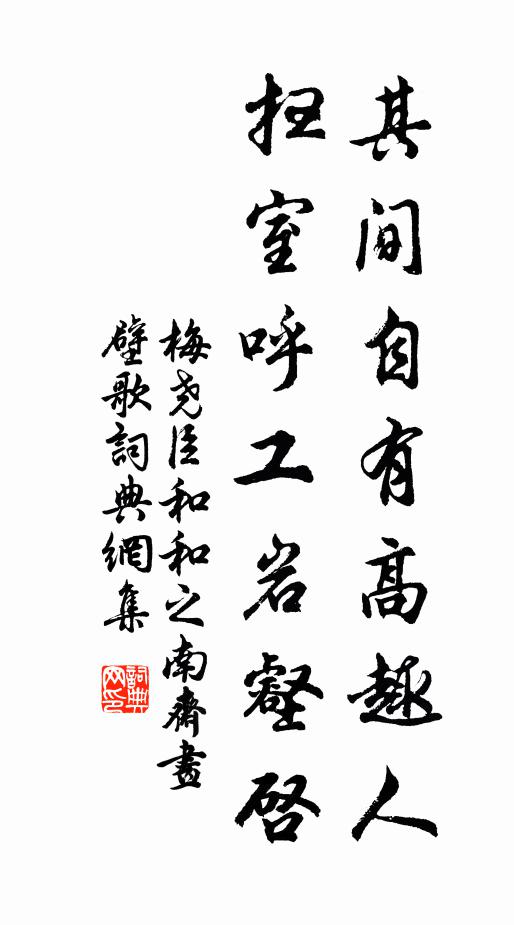 其间自有高趣人
扫室呼工岩壑启
梅尧臣和和之南斋画
壁歌词典網集
詞典
网印